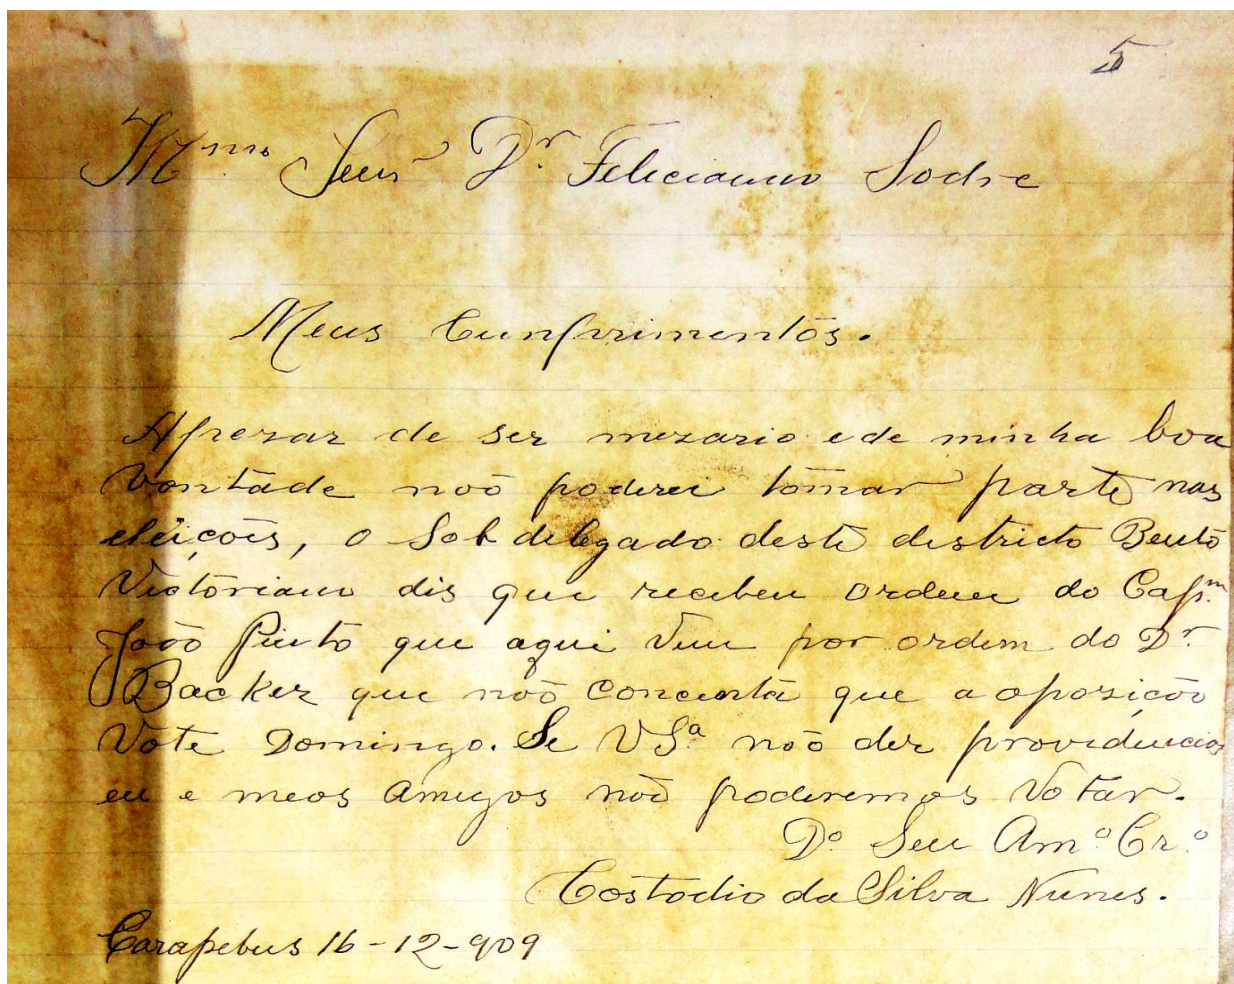 5
Illmo Senr Dr Feliciano Sodre
Meus Cunprimentos.
Apezar de ser mezario e de minha boa
vontade não poderei tomar parte nas
eleições, o Sob delegado deste districto Bento
Victoriano dis que recebeu ordem do Capm
João Pinto que aqui veiu por ordem do Dr
Backer que não concenta que a oposição
Vote Domingo. Se VSa não der providencias
eu e meos amigos não poderemos Votar.
Do Seu Amo Cro
Costodio da Silva Nunes.
Carapebus 16-12-909